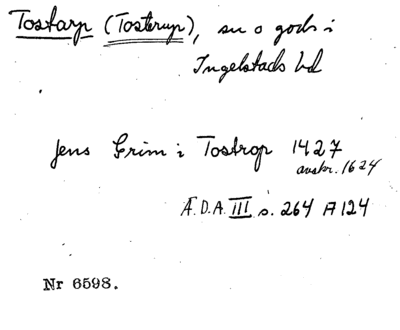 Tostarp (Tosterup), sn o gods i
Ingelstads hd
Jens Grim i Tostrop 1427
avskr. 1624
Æ.D.A. III s. 264 A 124
Nr 6598.